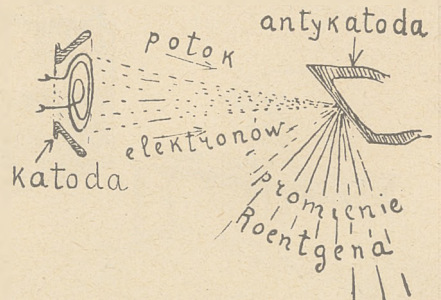 antykatoda
potok
elektronów
katoda
promienie
Roentgena